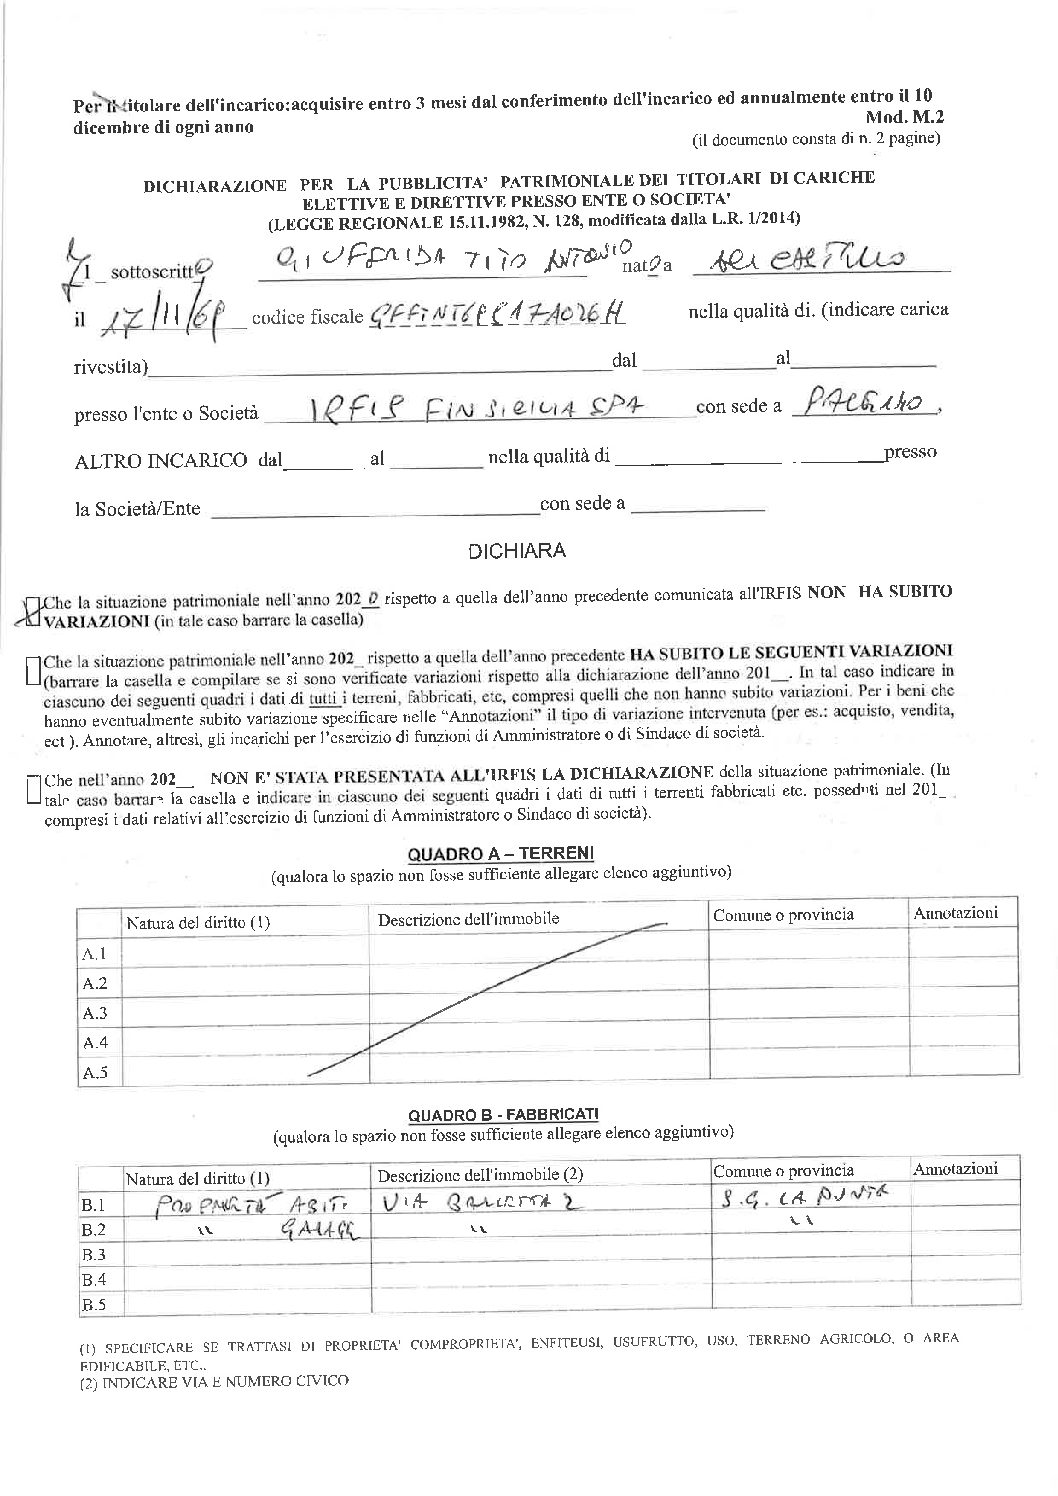 Per il titolare dell'incarico:acquisire entro 3 mesi dal conferimento dell'incarico ed annualmente entro il 10
dicembre di ogni anno
Mod. M.2
(il documento consta di n. 2 pagine)
DICHIARAZIONE PER LA PUBBLICITA' PATRIMONIALE DEI TITOLARI DI CARICHE
ELETTIVE E DIRETTIVE PRESSO ENTE O SOCIETA'
(LEGGE REGIONALE 15.11.1982, N. 128, modificata dalla L.R. 1/2014)
l_ sottoscritto GIUFFRIDA TITO ANTONIO nato a
il 17/11/68 codice fiscale nella qualità di. (indicare carica
rivestita) dal al
presso l'ente o Società IRFIS FINSICILIA SPA con sede a PALERMO,
ALTRO INCARICO dal al nella qualità di presso
la Società/Ente con sede a
DICHIARA
Che la situazione patrimoniale nell'anno 2020 rispetto a quella dell'anno precedente comunicata all'IRFIS NON HA SUBITO
VARIAZIONI (in tale caso barrare la casella)
Che la situazione patrimoniale nell'anno 202_ rispetto a quella dell'anno precedente HA SUBITO LE SEGUENTI VARIAZIONI
(barrare la casella e compilare se si sono verificate variazioni rispetto alla dichiarazione dell'anno 201__. In tal caso indicare in
ciascuno dei seguenti quadri i dati di tutti i terreni, fabbricati, etc, compresi quelli che non hanno subito variazioni. Per i beni che
hanno eventualmente subito variazione specificare nelle "Annotazioni" il tipo di variazione intervenuta (per es.: acquisto, vendita,
ect ). Annotare, altresì, gli incarichi per l'esercizio di funzioni di Amministratore o di Sindaco di società.
Che nell'anno 202__ NON E' STATA PRESENTATA ALL'IRFIS LA DICHIARAZIONE della situazione patrimoniale. (In
tale caso barrare la casella e indicare in ciascuno dei seguenti quadri i dati di tutti i terrenti fabbricati etc. posseduti nel 201_
compresi i dati relativi all'esercizio di funzioni di Amministratore o Sindaco di società).
QUADRO A – TERRENI
(qualora lo spazio non fosse sufficiente allegare elenco aggiuntivo)
Natura del diritto (1) Descrizione dell'immobile Comune o provincia Annotazioni
A.1
A.2
A.3
A.4
A.5
QUADRO B - FABBRICATI
(qualora lo spazio non fosse sufficiente allegare elenco aggiuntivo)
Natura del diritto (1) Descrizione dell'immobile (2) Comune o provincia Annotazioni
B.1 PROPRIETA' ABIT. VIA 2 S.G. LA PUNTA
B.2 " GARAGE " "
B.3
B.4
B.5
(1) SPECIFICARE SE TRATTASI DI PROPRIETA' COMPROPRIETA', ENFITEUSI, USUFRUTTO, USO, TERRENO AGRICOLO, O AREA
EDIFICABILE, ETC..
(2) INDICARE VIA E NUMERO CIVICO